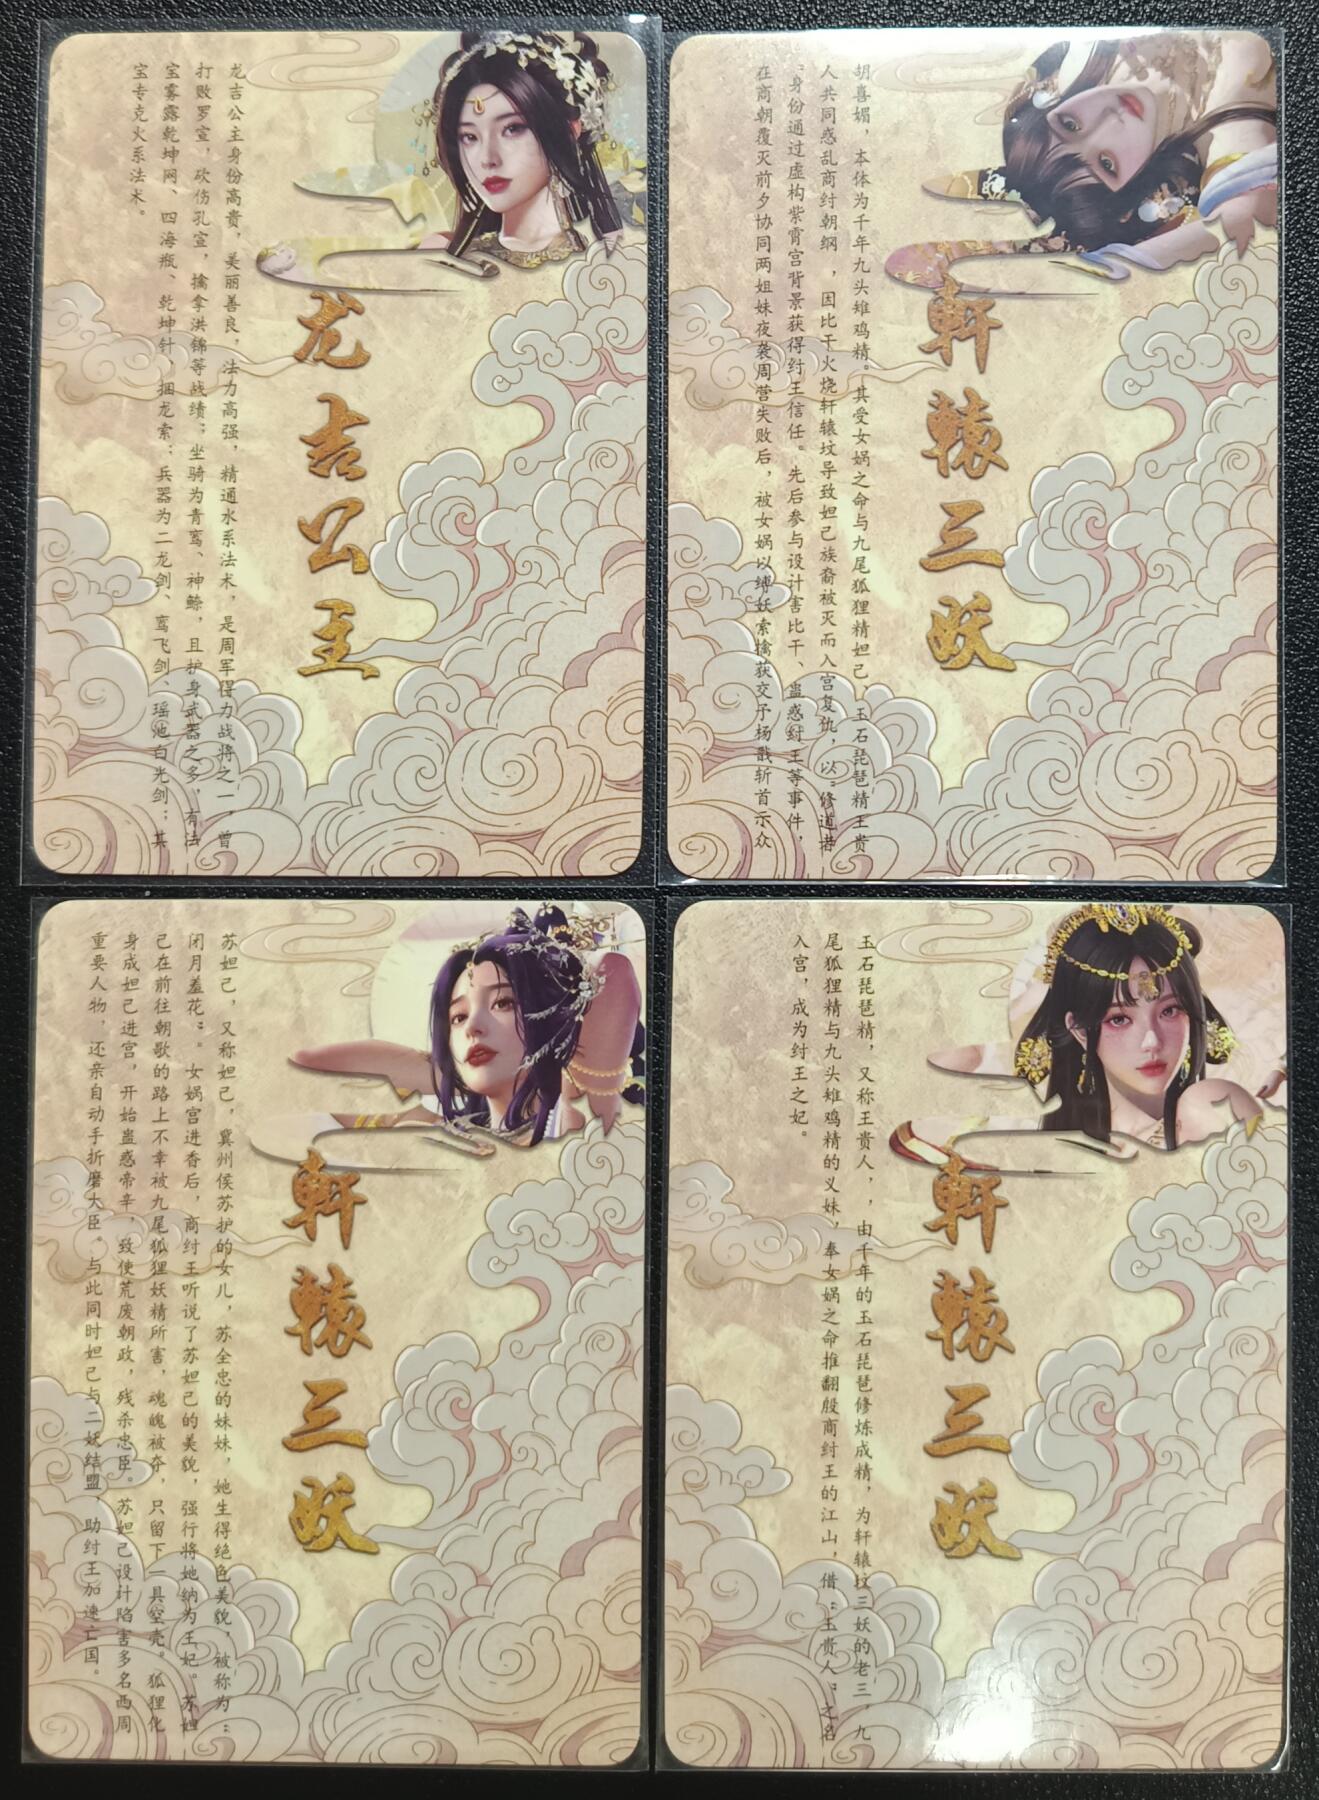 龙吉公主
龙吉公主身份高贵，美丽善良，法力高强，精通水系法术，是周军得力战将之一，曾
打败罗宣，砍伤孔宣，擒拿洪锦等战绩；坐骑为青鸾、神鲸，且护身武器之多，有法
宝雾露乾坤网、四海瓶、乾坤针，捆龙索；兵器为二龙剑、鸾飞剑、瑶池白光剑；其
宝专克火系法术。
軒轅三妖
胡喜媚，本体为千年九头雉鸡精。其受女娲之命与九尾狐狸精妲己、玉石琵琶精王贵
人共同惑乱商纣朝纲，因比干火烧轩辕坟导致妲己族裔被灭而入宫复仇，以“修道者
”身份通过虚构紫霄宫背景获得纣王信任。先后参与设计害比干、蛊惑纣王等事件，
在商朝覆灭前夕协同两姐妹夜袭周营失败后，被女娲以缚妖索擒获交予杨戬斩首示众
軒轅三妖
苏妲己，又称妲己，冀州侯苏护的女儿，苏全忠的妹妹，她生得绝色美貌，被称为“
闭月羞花”。女娲宫进香后，商纣王听说了苏妲己的美貌，强行将她纳为王妃。苏妲
己在前往朝歌的路上不幸被九尾狐狸妖精所害，魂魄被夺，只留下一具空壳。狐狸化
身成妲己进宫，开始蛊惑帝辛，致使荒废朝政，残杀忠臣。苏妲己设计陷害多名西周
重要人物，还亲自动手折磨大臣。与此同时妲己与二妖结盟，助纣王加速亡国。
軒轅三妖
玉石琵琶精，又称王贵人，，由千年的玉石琵琶修炼成精，为轩辕坟三妖的老三，九
尾狐狸精与九头雉鸡精的义妹，奉女娲之命推翻殷商纣王的江山，借“玉贵人”之名
入宫，成为纣王之妃。